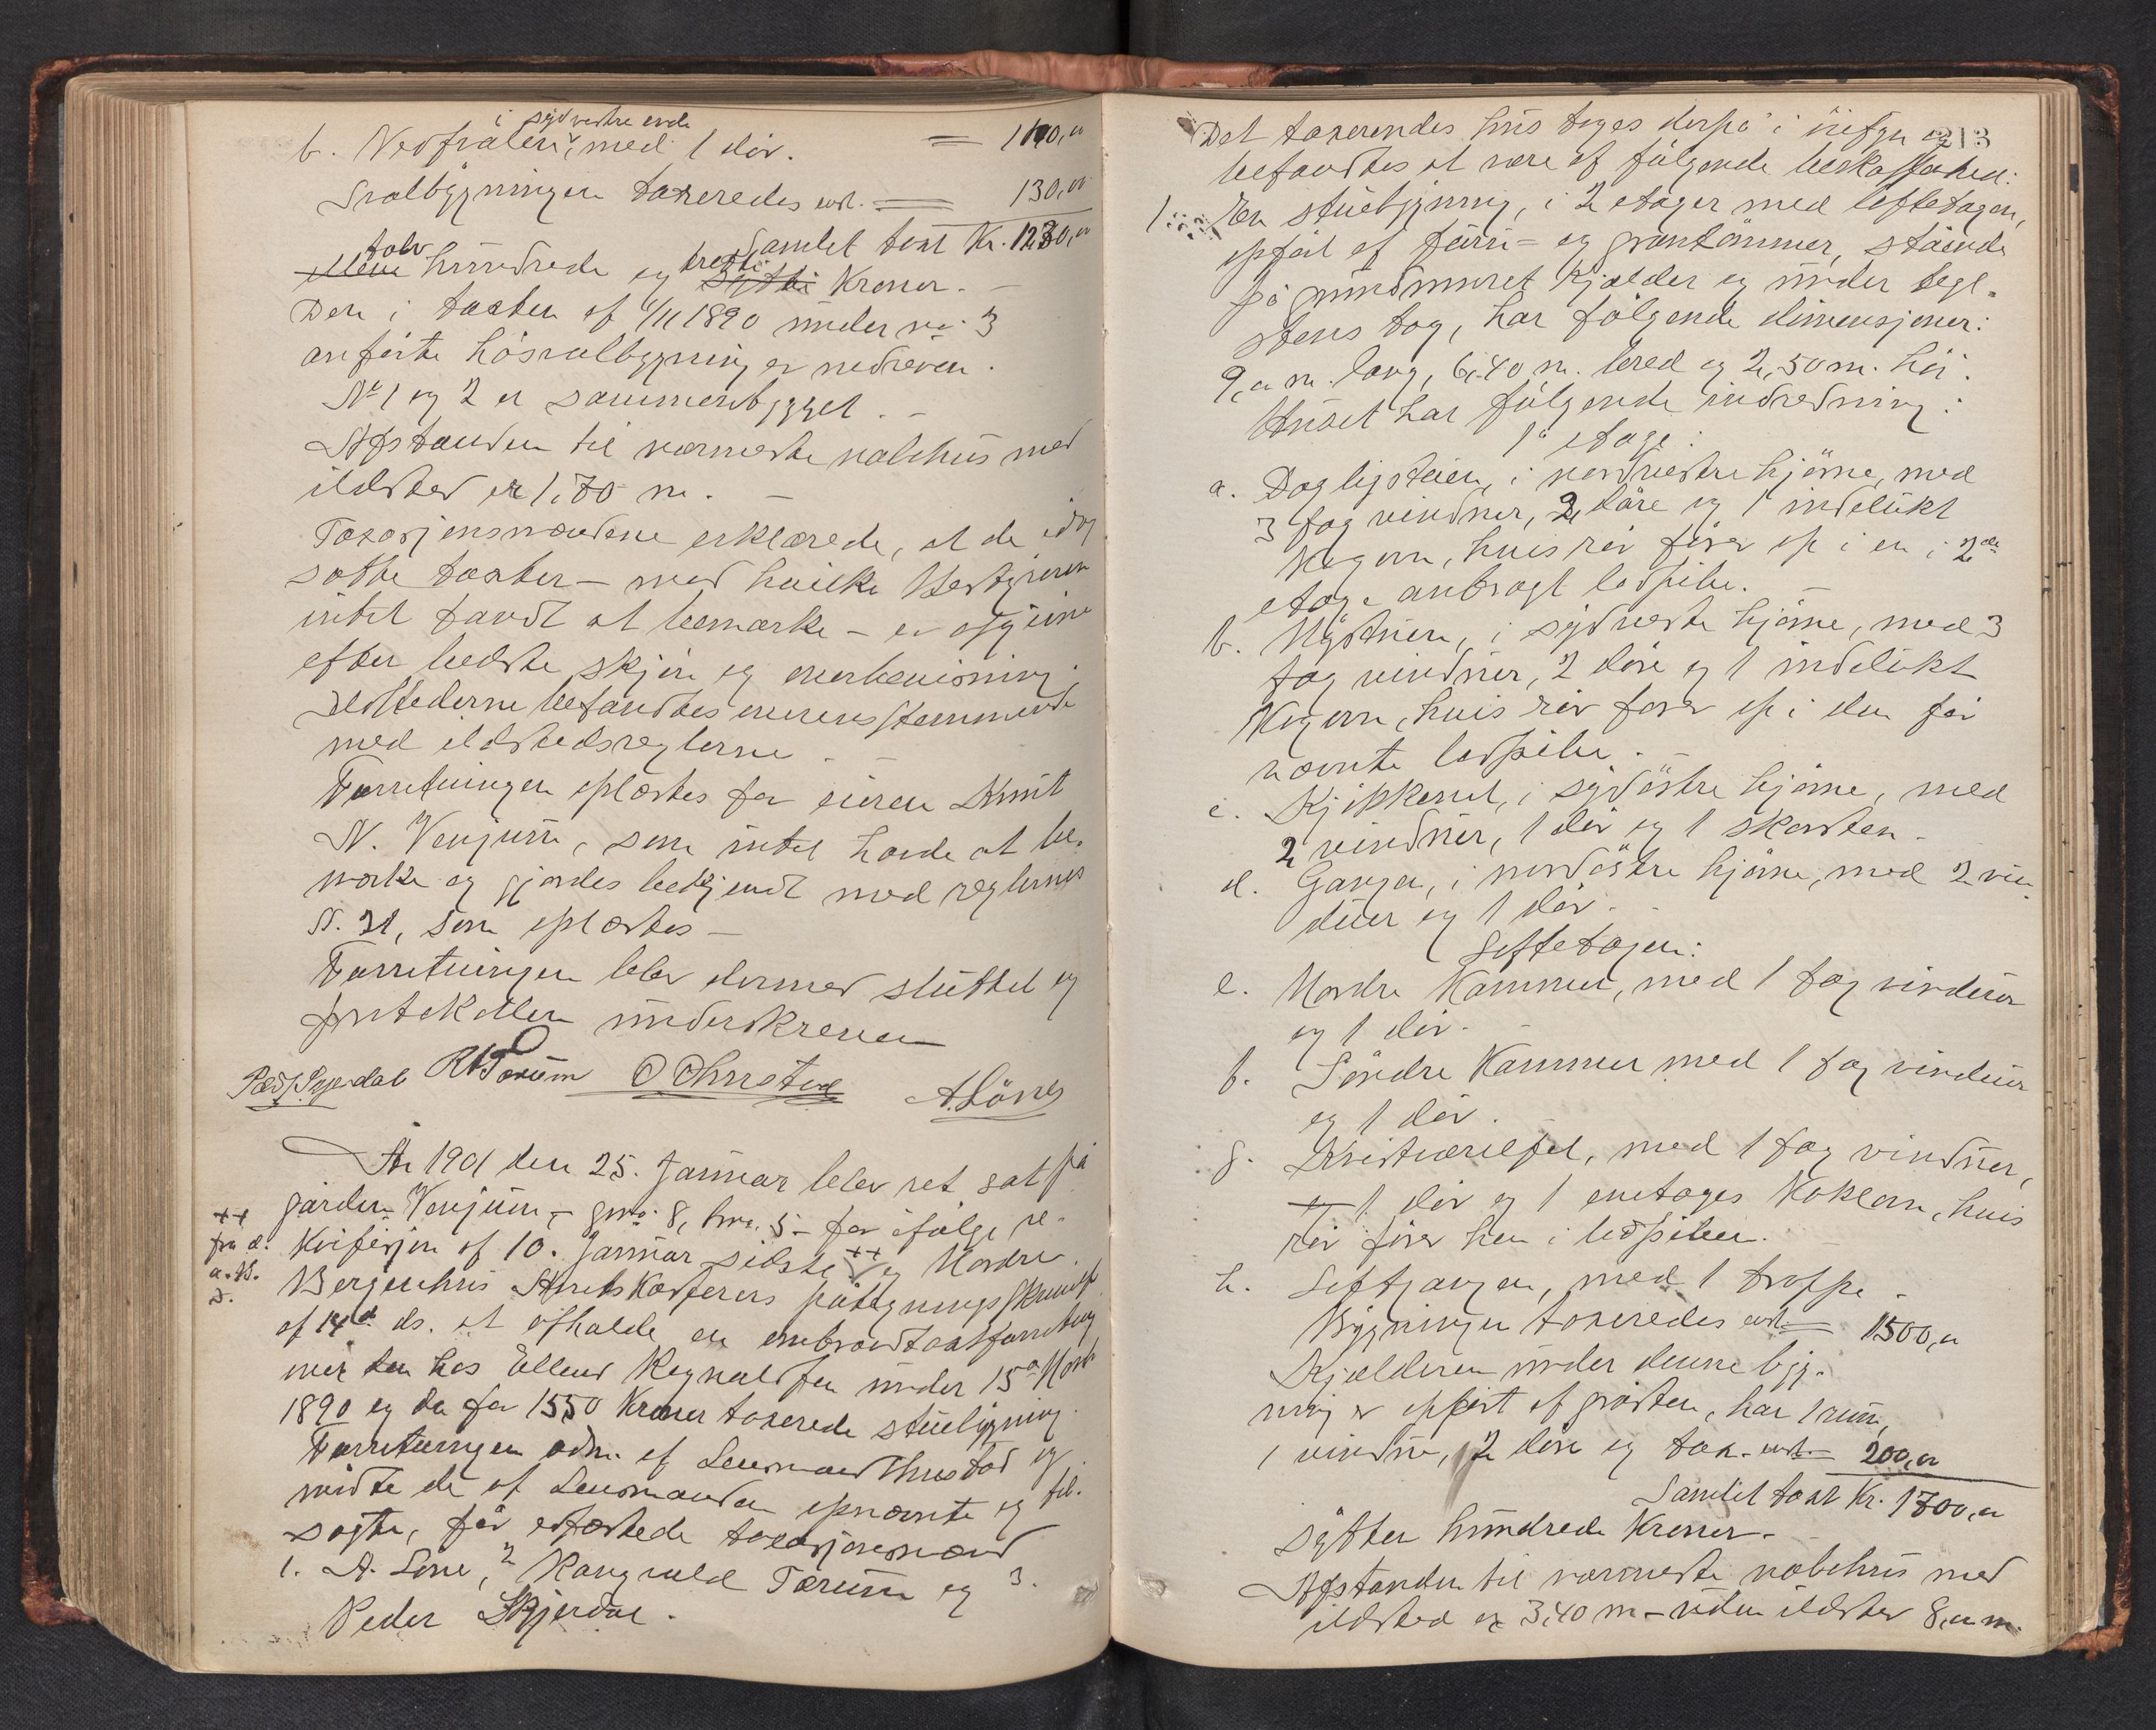 i sydvestre ende
b. Vedsvalen, med 1 dör. = 100,00
Svalbygningen taxeredes til = 130,00
Samlet taxt Kr. 1230,00
tolv tredti
elleve hundrede og sytti Kroner. —
Den i taxten af 6/11 1890 under no. 3
anförte hösvalbygning er nedreven.
No 1 og 2 er sammenbygget. —
Afstanden til nærmeste nabohus med
ildsted er 1,70 m. —
Taxasjensmændene erklærede, at de idag
satte taxter — mod hvilke Bestyreren
intet fandt at bemærke — er afgivne
efter bedste skjön og overbevisning.
Ildstederne befandtes overensstemmende
med ildstedsreglerne. —
Forretningen oplæstes for eieren Knut
N. Venjum, som intet havde at be-
mærke og gjordes bekjendt med reglernes
§. 31, som oplæstes —
Forretningen blev dermed sluttet og
protokollen underskreven
Peder Skjerdal RKTorum O Ohnstad A. Löne
År 1901 den 25. Januar blev ret sat på
gården Venjum, — gno. 8, bno. 5 — for ifölge re-
kvisisjon af 10. Januar sidste ++ og Nordre
++
fra d.
a. B.
Bergenhus Amtskasserers påtegningsskrivelse
af 14de ds. at afholde en ombrandtaxtforretning
over den hos Ellend Ragnvaldsen under 15de Novbr
1890 og da for 1550 Kroner taxerede stuebygning.
Forretningen adm. af Lensmand Ohnstad og
mödte de af Lensmanden opnævnte og til-
sagte, för edfæstede taxasjonsmænd
1. A. Löne, 2 Rangvald Torum og 3.
Peder Skjerdal.
213
Det taxerendes hus toges derpå i öiesyn og
befandtes at være af fölgende beskaffenhed:
1. En stuebygning, i 2 etager med loftetagen,
opfört af furu- og grantömmer, stående
på grundmuret Kjælder og under tegl-
stens tag, har fölgende dimensjoner:
9,00 m. lang, 6,40 m. bred og 2,50 m. höi.
Huset har fölgende indredning:
1ste etage:
a. Dagligstuen, i nordvestre hjörne, med
3 fag vinduer, 2 döre og 1 indelukt
Kogovn, huis rör förer op i en i 2den
etage anbragt lerpibe. —
b. Nystuen, i sydvestre hjörne, med 3
fag vinduer, 2 döre og 1 indelukt
Kogovn, huis rör förer op i den för
nævnte lerpibe. —
c. Kjökkenet, i sydöstre hjörne, med
2 vinduer, 1 dör og 1 skorsten. —
d. Gangen, i nordöstre hjörne, med 2 vin
duer og 1 dör. —
Loftetagen:
e. Nordre Kammer, med 1 fag vinduer
og 1 dör. —
f. Söndre Kammer med 1 fag vinduer
og 1 dör.
g. Kvistværelset, med 1 fag vinduer,
og 1 dör og 1 enetages Kakkelovn, huis
rör förer hen i lerpiben. —
h. Loftgangen, med 1 trappe. —
Bygningen taxeredes til = 1500,00
Kjælderen under denne byg-
ning er opfört af gråsten, har 1 rum,
1 vindue, 2 döre og tax. til = 200,00
Samlet taxt Kr. 1700,00
sytten hundrede Kroner. —
Afstanden til nærmeste nabohus med
ildsted er 3,40 m — uden ildsted 8,00 m.